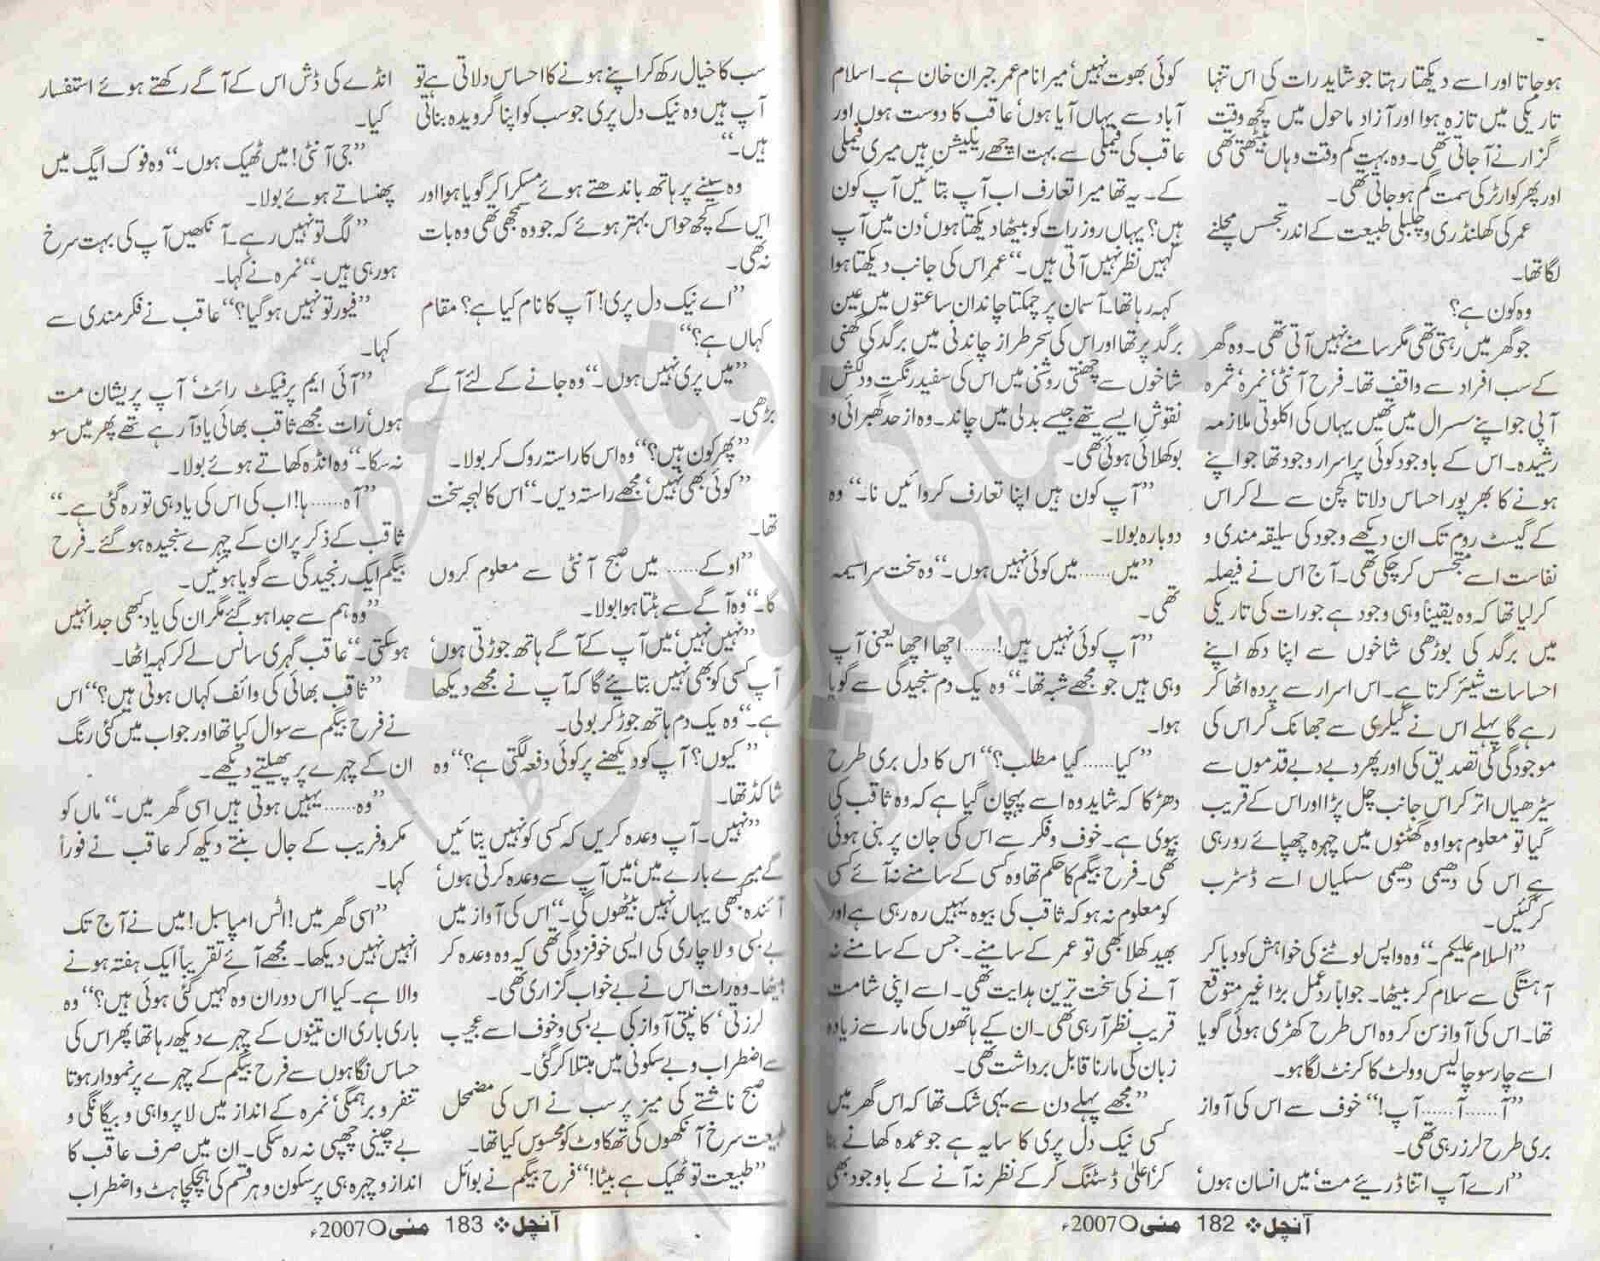 ہوجاتا اور اسے دیکھتا رہتا جو شاید رات کی اس تنہا
تاریکی میں تازہ ہوا اور آزاد ماحول میں کچھ وقت
گزارنے آجاتی تھی۔ وہ بہت کم وقت وہاں بیٹھتی تھی
اور پھر کوارٹر کی سمت گم ہوجاتی تھی۔
عمر کی کھلنڈری و چلبلی طبیعت کے اندر تجسس مچلنے
لگا تھا۔
وہ کون ہے؟
جو گھر میں رہتی تھی مگر سامنے نہیں آتی تھی۔ وہ گھر
کے سب افراد سے واقف تھا۔ فرح آنٹی‘ نمرہ‘ ثمرہ
آپی جو اپنے سسرال میں تھیں یہاں کی اکلوتی ملازمہ
رشیدہ۔ اس کے باوجود کوئی پراسرار وجود تھا جو اپنے
ہونے کا بھرپور احساس دلاتا کچن سے لے کر اس
کے گیسٹ روم تک ان دیکھے وجود کی سلیقہ مندی و
نفاست اسے متجسس کرچکی تھی۔ آج اس نے فیصلہ
کرلیا تھا کہ وہ یقیناً وہی وجود ہے جو رات کی تاریکی
میں برگد کی بوڑھی شاخوں سے اپنا دکھ اپنے
احساسات شیئر کرتا ہے۔ اس اسرار سے پردہ اٹھا کر
رہے گا پہلے اس نے گیلری سے جھانک کر اس کی
موجودگی کی تصدیق کی اور پھر دبے دبے قدموں سے
سیڑھیاں اتر کر اس جانب چل پڑا اور اس کے قریب
گیا تو معلوم ہوا وہ گھٹنوں میں چہرہ چھپائے رو رہی
ہے اس کی دھیمی دھیمی سسکیاں اسے ڈسٹرب
کرگئیں۔
”السلام علیکم۔“ وہ واپس لوٹنے کی خواہش کو دبا کر
آہستگی سے سلام کر بیٹھا۔ جواباً ردعمل بڑا غیر متوقع
تھا۔ اس کی آواز سن کر وہ اس طرح کھڑی ہوئی گویا
اسے چار سو چالیس وولٹ کا کرنٹ لگا ہو۔
”آ......آ......آپ!“ خوف سے اس کی آواز
بری طرح لرز رہی تھی۔
”ارے آپ اتنا ڈریئے مت‘ میں انسان ہوں‘
کوئی بھوت نہیں‘ میرا نام عمر جبران خان ہے۔ اسلام
آباد سے یہاں آیا ہوں‘ عاقب کا دوست ہوں اور
عاقب کی فیملی سے بہت اچھے ریلیشن ہیں میری فیملی
کے۔ یہ تھا میرا تعارف اب آپ بتائیں آپ کون
ہیں؟ یہاں روز رات کو بیٹھا دیکھتا ہوں‘ دن میں آپ
کہیں نظر نہیں آتی ہیں۔“ عمر اس کی جانب دیکھتا ہوا
کہہ رہا تھا۔ آسمان پر چمکتا چاند ان ساعتوں میں عین
برگد پر تھا اور اس کی سحر طراز چاندنی میں برگد کی گھنی
شاخوں سے چھنتی روشنی میں اس کی سفید رنگت و دلکش
نقوش ایسے تھے جیسے بدلی میں چاند۔ وہ از حد گھبرائی و
بوکھلائی ہوئی تھی۔
”آپ کون ہیں اپنا تعارف کروائیں نا۔“ وہ
دوبارہ بولا۔
”میں......میں کوئی نہیں ہوں۔“ وہ سخت سراسیمہ
تھی۔
”آپ کوئی نہیں ہیں!......اچھا اچھا یعنی آپ
وہی ہیں جو مجھے شبہ تھا۔“ وہ یک دم سنجیدگی سے گویا
ہوا۔
”کیا......کیا مطلب؟“ اس کا دل بری طرح
دھڑکا کہ شاید وہ اسے پہچان گیا ہے کہ وہ ثاقب کی
بیوی ہے۔ خوف و فکر سے اس کی جان پر بنی ہوئی
تھی۔ فرح بیگم کا حکم تھا وہ کسی کے سامنے نہ آئے کسی
کو معلوم نہ ہو کہ ثاقب کی بیوہ یہیں رہ رہی ہے اور
بھید کھلا بھی تو عمر کے سامنے۔ جس کے سامنے نہ
آنے کی سخت ترین ہدایت تھی۔ اسے اپنی شامت
قریب نظر آرہی تھی۔ ان کے ہاتھوں کی مار سے زیادہ
زبان کی مار ناقابل برداشت تھی۔
”مجھے پہلے دن سے یہی شک تھا کہ اس گھر میں
کسی نیک دل پری کا سایہ ہے جو عمدہ کھانے بنا
کر‘ اعلیٰ ڈسٹنگ کرکے نظر نہ آنے کے باوجود بھی
آنچل ❖ 182 مئی ○ 2007ء
سب کا خیال رکھ کر اپنے ہونے کا احساس دلاتی ہے تو
آپ ہیں وہ نیک دل پری جو سب کو اپنا گرویدہ بناتی
ہیں۔“
وہ سینے پر ہاتھ باندھتے ہوئے مسکرا کر گویا ہوا اور
اس کے کچھ حواس بہتر ہوئے کہ جو وہ سمجھی تھی وہ بات
نہ تھی۔
”اے نیک دل پری! آپ کا نام کیا ہے؟ مقام
کہاں ہے؟“
”میں پری نہیں ہوں۔“ وہ جانے کے لئے آگے
بڑھی۔
”پھر کون ہیں؟“ وہ اس کا راستہ روک کر بولا۔
”کوئی بھی نہیں‘ مجھے راستہ دیں۔“ اس کا لہجہ سخت
تھا۔
”اوکے...... میں صبح آنٹی سے معلوم کروں
گا۔“ وہ آگے سے ہٹتا ہوا بولا۔
”نہیں نہیں‘ میں آپ کے آگے ہاتھ جوڑتی ہوں‘
آپ کسی کو بھی نہیں بتایئے گا کہ آپ نے مجھے دیکھا
ہے۔“ وہ یک دم ہاتھ جوڑ کر بولی۔
”کیوں؟ آپ کو دیکھنے پر کوئی دفعہ لگتی ہے؟“ وہ
شاکڈ تھا۔
”نہیں۔ آپ وعدہ کریں کہ کسی کو نہیں بتائیں
گے میرے بارے میں‘ میں آپ سے وعدہ کرتی ہوں‘
آئندہ کبھی یہاں نہیں بیٹھوں گی۔“ اس کی آواز میں
بے بسی و لاچاری کی ایسی خوفزدگی تھی کہ وہ وعدہ کر
بیٹھا۔ وہ رات اس نے بے خواب گزاری تھی۔
لرزتی‘ کانپتی آواز کی بے بسی و خوف اسے عجیب
سے اضطراب و بے سکونی میں مبتلا کرگئی۔
صبح ناشتے کی میز پر سب نے اس کی مضمحل
طبیعت سرخ آنکھوں کی تھکاوٹ کو محسوس کیا تھا۔
”طبیعت تو ٹھیک ہے بیٹا!“ فرح بیگم نے بوائل
انڈے کی ڈش اس کے آگے رکھتے ہوئے استفسار
کیا۔
”جی آنٹی! میں ٹھیک ہوں۔“ وہ فوک ایگ میں
پھنساتے ہوئے بولا۔
”لگ تو نہیں رہے۔ آنکھیں آپ کی بہت سرخ
ہورہی ہیں۔“ نمرہ نے کہا۔
”فیور تو نہیں ہوگیا؟“ عاقب نے فکرمندی سے
کہا۔
”آئی ایم پرفیکٹ رائٹ‘ آپ پریشان مت
ہوں‘ رات مجھے ثاقب بھائی یاد آرہے تھے پھر میں سو
نہ سکا۔“ وہ انڈہ کھاتے ہوئے بولا۔
”آہ......ہا! اب کی اس کی یاد ہی تو رہ گئی ہے۔“
ثاقب کے ذکر پر ان کے چہرے سنجیدہ ہوگئے۔ فرح
بیگم ایک رنجیدگی سے گویا ہوئیں۔
”وہ ہم سے جدا ہوگئے مگر ان کی یاد کبھی جدا نہیں
ہوسکتی۔“ عاقب گہری سانس لے کر کہہ اٹھا۔
”ثاقب بھائی کی وائف کہاں ہوتی ہیں؟“ اس
نے فرح بیگم سے سوال کیا تھا اور جواب میں کئی رنگ
ان کے چہرے پر پھیلتے دیکھے۔
”وہ......یہیں ہوتی ہیں اسی گھر میں۔“ ماں کو
مکر و فریب کے جال بنتے دیکھ کر عاقب نے فوراً
کہا۔
”اسی گھر میں! اٹس امپاسبل! میں نے آج تک
انہیں نہیں دیکھا۔ مجھے آئے تقریباً ایک ہفتہ ہونے
والا ہے۔ کیا اس دوران وہ کہیں گئی ہوئی ہیں؟“ وہ
باری باری ان تینوں کے چہرے دیکھ رہا تھا پھر اس کی
حساس نگاہوں سے فرح بیگم کے چہرے پر نمودار ہوتا
تنفر و برہمگی‘ نمرہ کے انداز میں لاپرواہی و بیگانگی و
بے چینی چھپی نہ رہ سکی۔ ان میں صرف عاقب کا
انداز و چہرہ ہی پرسکون و ہر قسم کی ہچکچاہٹ و اضطراب
آنچل ❖ 183 مئی ○ 2007ء